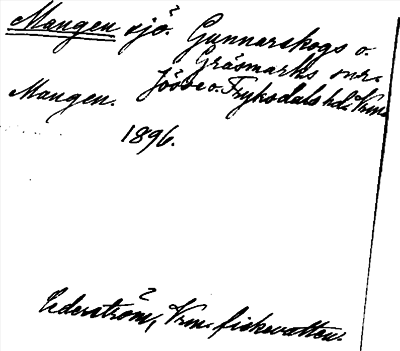 Mangen sjö. Gunnarskogs o.
Gräsmarks snr.
Jösse o. Fryksdals hd. Vrml.
Mangen.
1896.
Cederström, Vrm. fiskevatten.